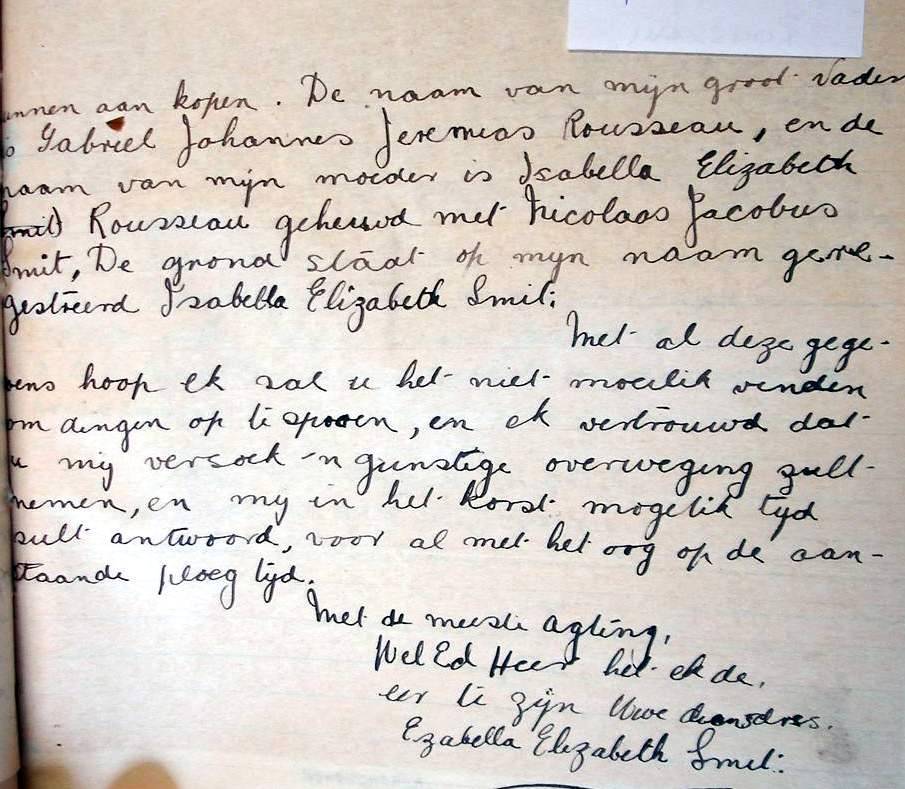 nnen aan kopen. De naam van mijn groot Vader
Gabriel Johannes Jeremias Rousseau, en de
naam van mijn moeder is Isabella Elizabeth
Smit) Rousseau geheuwd met Nicolaas Jacobus
Smit, De grond staat op mijn naam gere-
gestreerd Isabella Elizabeth Smit:
Met al deze gege-
vens hoop ek sal u het niet moeilik vinden
om dingen op te spooren, en ek vertrouwd dat
u mij versoek 'n gunstige overweging zult
nemen, en mij in het korst mogelik tijd
sult antwoord, voor al met het oog op de aan-
staande ploeg tijd.
Met de meeste agting,
Wel Ed Heer het ek de
eer te zijn Uwe dienstres.
Ezabella Elizabeth Smit: